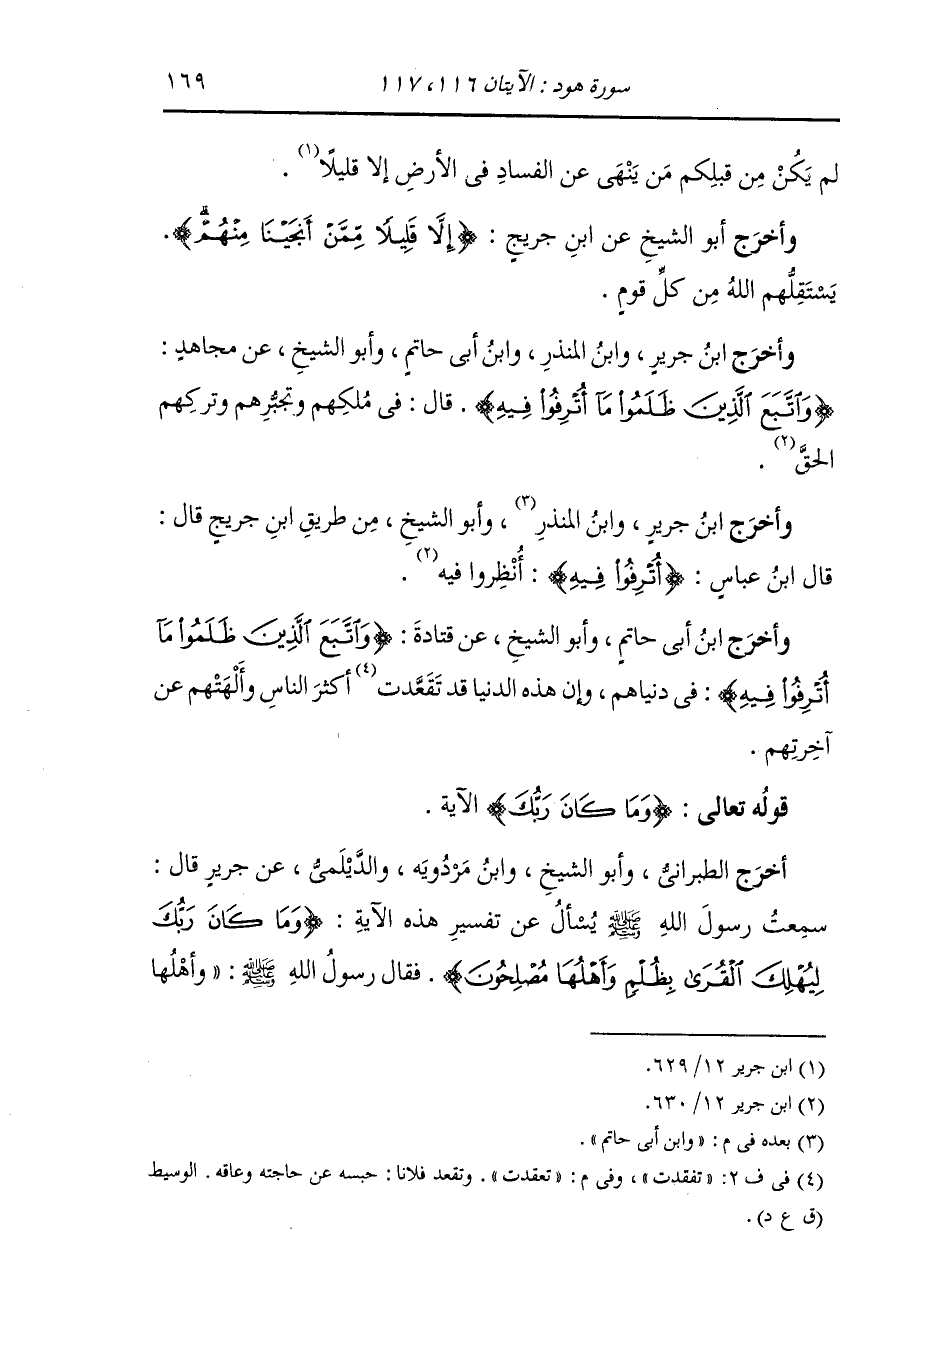 سورة هود : الآيتان ١١٦، ١١٧ ١٦٩
لم يَكُنْ مِن قبلِكم مَن يَنْهَى عن الفسادِ فى الأرضِ إلا قليلًا(١) .
وأخرَج أبو الشيخِ عن ابنِ جريجٍ : ﴿إِلَّا قَلِيلًا مِّمَّنْ أَنجَيْنَا مِنْهُمْۗ﴾.
يَسْتَقِلُّهم اللهُ مِن كلِّ قومٍ .
وأخرَج ابنُ جريرٍ ، وابنُ المنذرِ ، وابنُ أبى حاتمٍ ، وأبو الشيخِ ، عن مجاهدٍ :
﴿وَٱتَّبَعَ ٱلَّذِينَ ظَلَمُوا۟ مَآ أُتْرِفُوا۟ فِيهِ﴾ . قال : فى مُلكِهم وتجبُّرِهم وتركِهم
الحقَّ(٢) .
وأخرَج ابنُ جريرٍ ، وابنُ المنذرِ(٣) ، وأبو الشيخِ ، مِن طريقِ ابنِ جريجٍ قال :
قال ابنُ عباسٍ : ﴿أُتْرِفُوا۟ فِيهِ﴾ : أُنْظِروا فيه(٢) .
وأخرَج ابنُ أبى حاتمٍ ، وأبو الشيخِ ، عن قتادةَ : ﴿وَٱتَّبَعَ ٱلَّذِينَ ظَلَمُوا۟ مَآ
أُتْرِفُوا۟ فِيهِ﴾ : فى دنياهم ، وإن هذه الدنيا قد تَقَعَّدت(٤) أكثرَ الناسِ وأَلْهَتْهم عن
آخرتِهم .
قولُه تعالى : ﴿وَمَا كَانَ رَبُّكَ﴾ الآية .
أخرَج الطبرانىُّ ، وأبو الشيخِ ، وابنُ مَرْدُويَه ، والدَّيْلَمىُّ ، عن جريرٍ قال :
سمِعتُ رسولَ اللهِ ﷺ يُسْألُ عن تفسيرِ هذه الآيةِ : ﴿وَمَا كَانَ رَبُّكَ
لِيُهْلِكَ ٱلْقُرَىٰ بِظُلْمٍ وَأَهْلُهَا مُصْلِحُونَ﴾ . فقال رسولُ اللهِ ﷺ : « وأهْلُها
(١) ابن جرير ١٢/ ٦٢٩.
(٢) ابن جرير ١٢/ ٦٣٠.
(٣) بعده فى م : « وابن أبى حاتم » .
(٤) فى ف ٢: « تفقدت » ، وفى م : « تعقدت » . وتقعد فلانا : حبسه عن حاجته وعاقه . الوسيط
(ق ع د) .